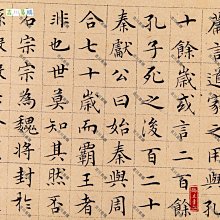 十餘歲或言二百
孔子死之後百二十
秦獻公曰始秦與周
合七十歲而霸王者
非也世莫知其然否
名宗宗為魏將封於